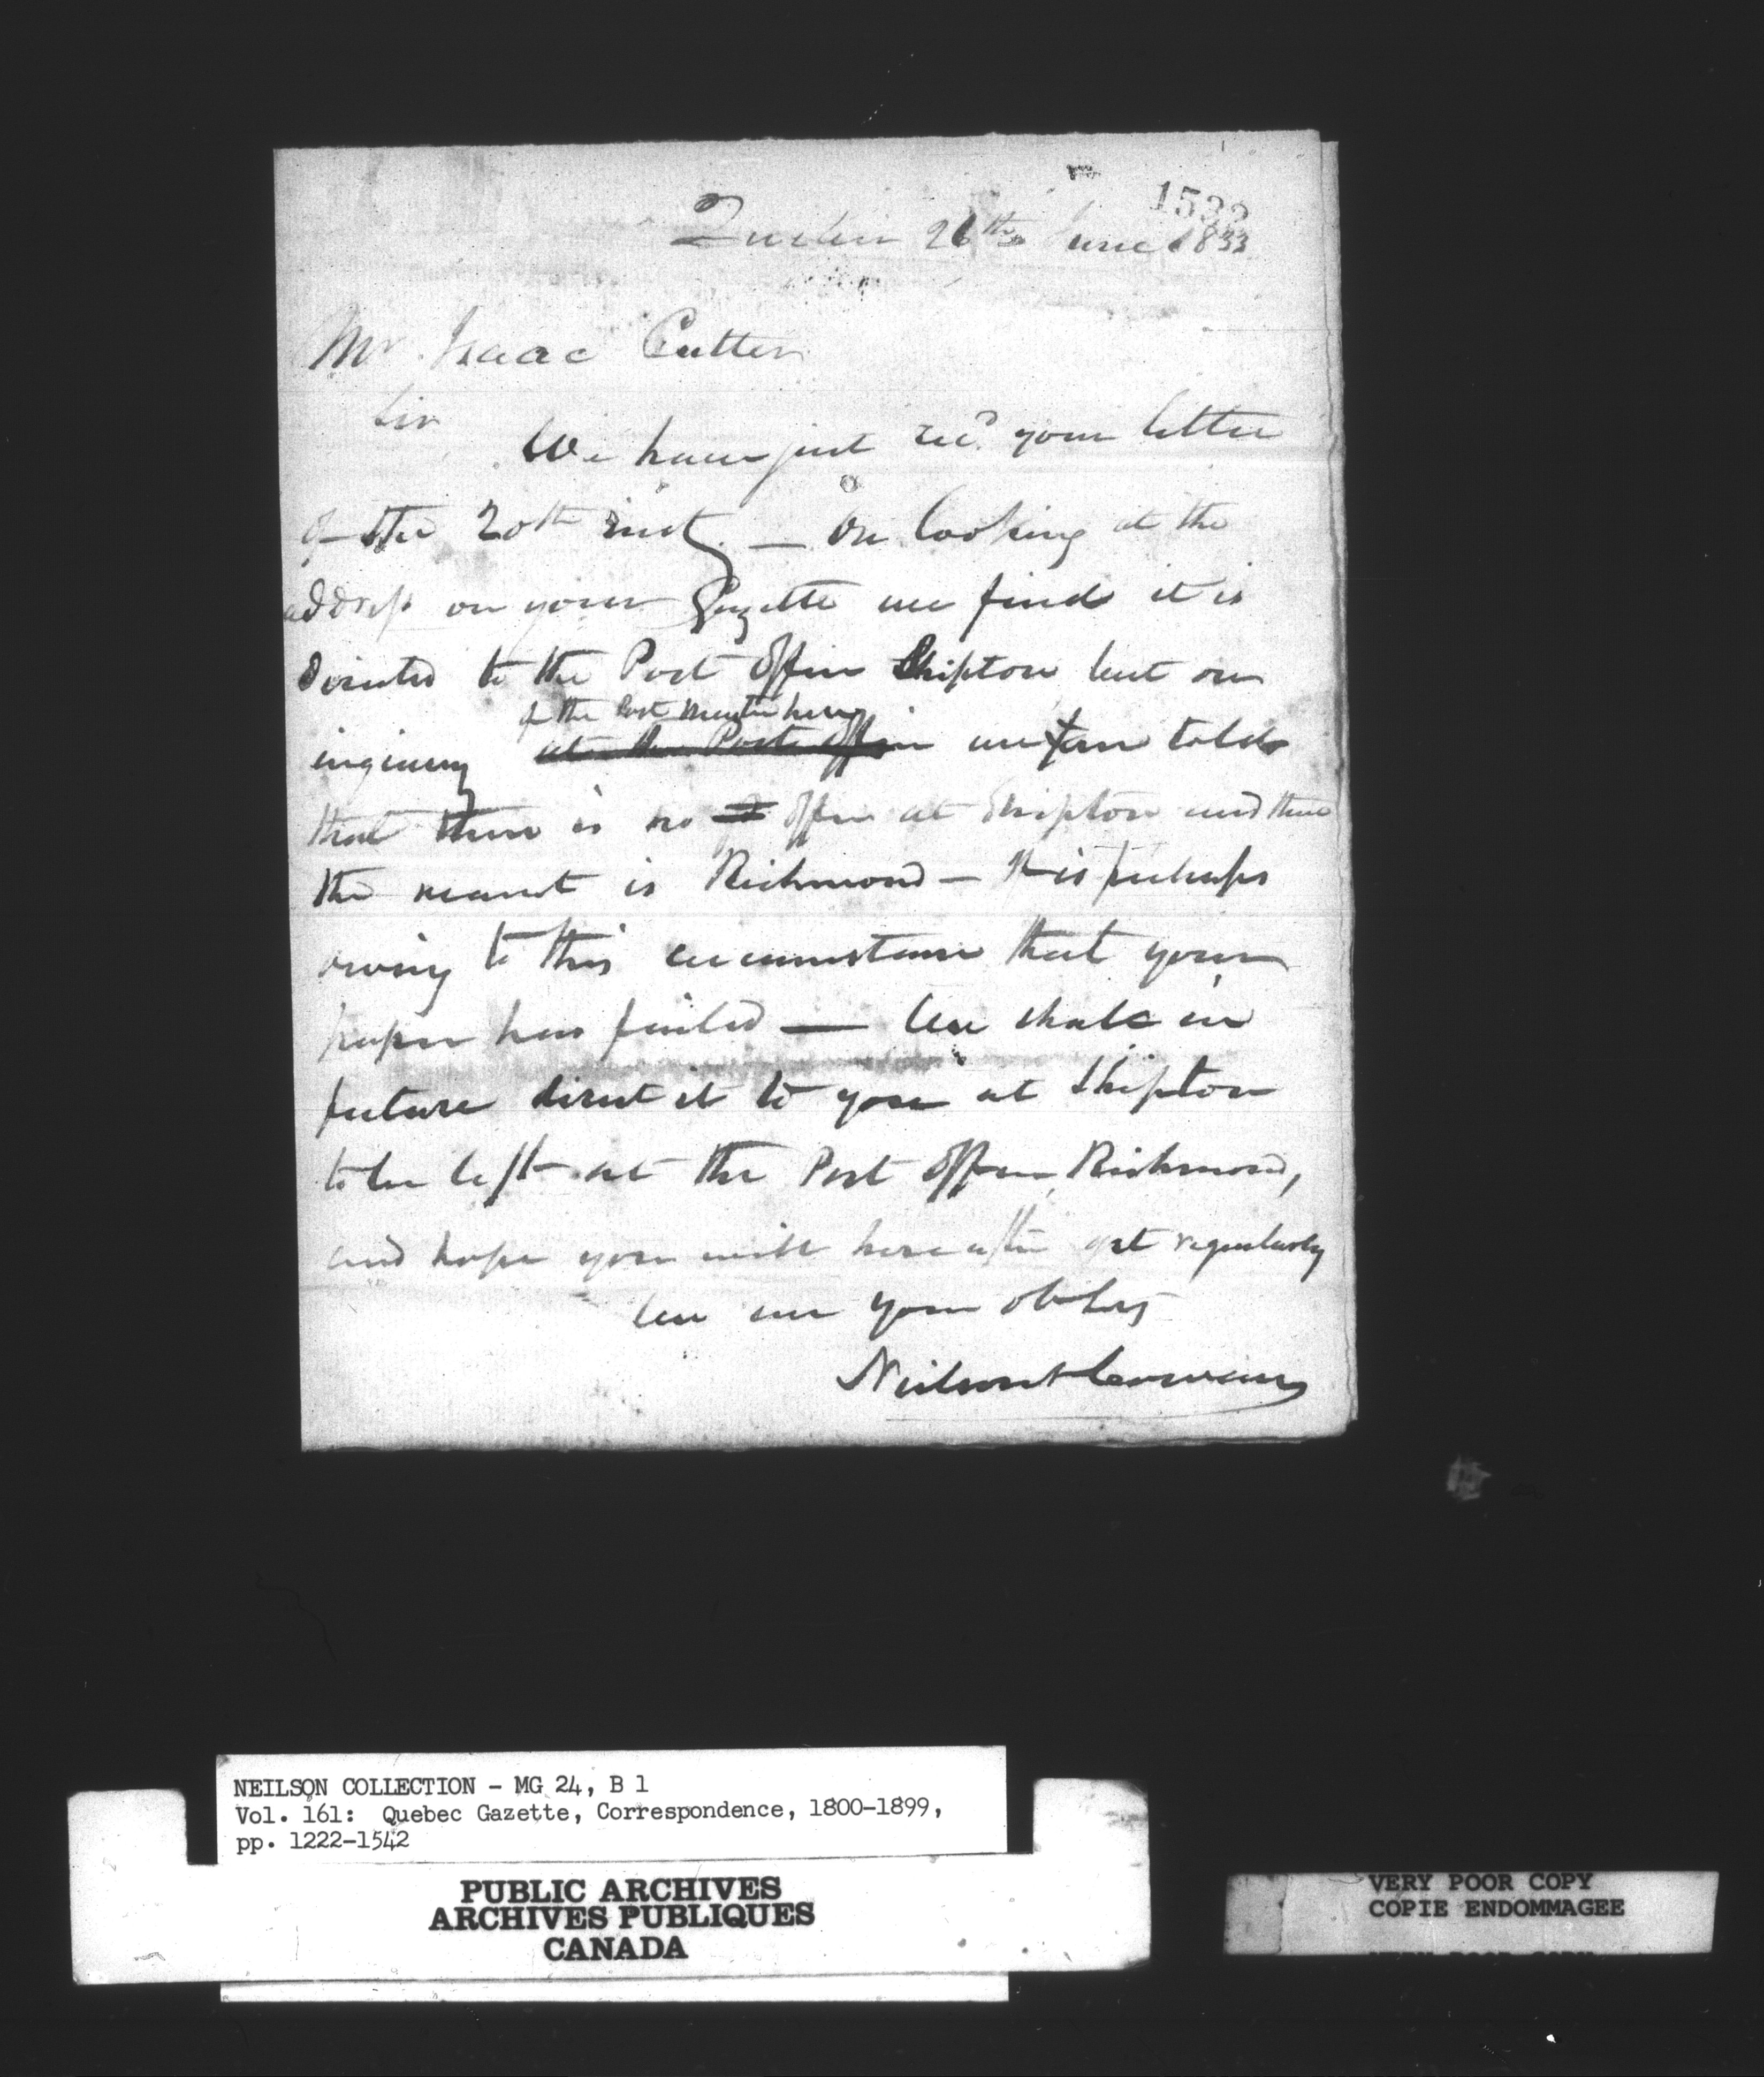 1532
Quebec 26th June 1833
Mr. Isaac Cutter
Sir
We have just recd. your letter
of the 20th inst. — On looking at the
address on your Gazette we find it is
directed to the Post Office Shipton but on
of the Post Master here
inquiry at the Post Office we are told
that there is no Office at Shipton and that
the nearest is Richmond — It is perhaps
owing to this circumstance that your
paper has failed — We shall in
future direct it to you at Shipton
to be left at the Post Office, Richmond,
and hope you will hereafter get regularly
We are your obt. Servts
Neilson & Cowan
NEILSON COLLECTION - MG 24, B 1
Vol. 161: Quebec Gazette, Correspondence, 1800-1899,
pp. 1222-1542
PUBLIC ARCHIVES
ARCHIVES PUBLIQUES
CANADA
VERY POOR COPY
COPIE ENDOMMAGEE
VERY POOR COPY